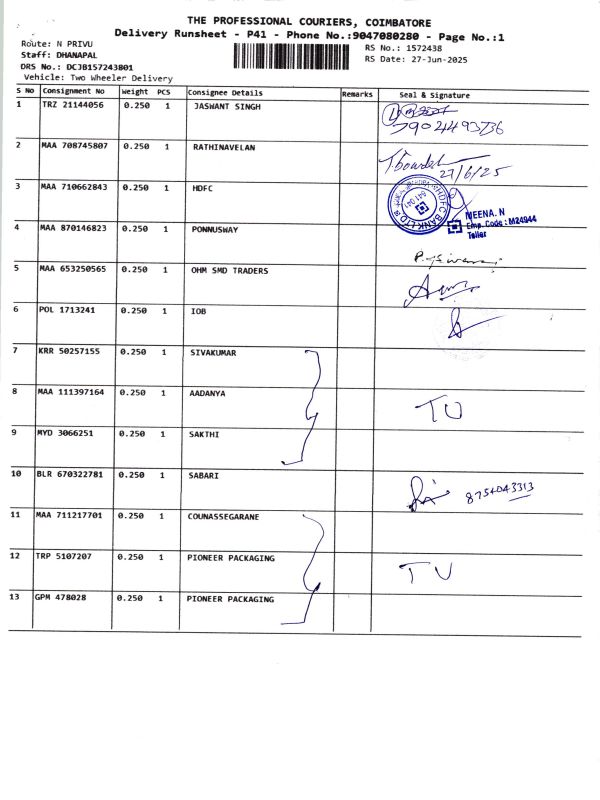 THE PROFESSIONAL COURIERS, COIMBATORE
Delivery Runsheet - P41 - Phone No.:9047080280 - Page No.:1
Route: N PRIVU
RS No.: 1572438
Staff: DHANAPAL
RS Date: 27-Jun-2025
DRS No.: DCJB157243801
Vehicle: Two Wheeler Delivery
S No Consignment No Weight PCS Consignee Details Remarks Seal & Signature
1 TRZ 21144056 0.250 1 JASWANT SINGH
7904493736
2 MAA 708745807 0.250 1 RATHINAVELAN
27/6/25
3 MAA 710662843 0.250 1 HDFC
HDFC BANK LTD
641 041
MEENA. N
Emp. Code : M24944
Teller
4 MAA 870146823 0.250 1 PONNUSWAY
5 MAA 653250565 0.250 1 OHM SMD TRADERS
6 POL 1713241 0.250 1 IOB
7 KRR 50257155 0.250 1 SIVAKUMAR
8 MAA 111397164 0.250 1 AADANYA TU
9 MYD 3066251 0.250 1 SAKTHI
10 BLR 670322781 0.250 1 SABARI
8754043313
11 MAA 711217701 0.250 1 COUNASSEGARANE
12 TRP 5107207 0.250 1 PIONEER PACKAGING TU
13 GPM 478028 0.250 1 PIONEER PACKAGING